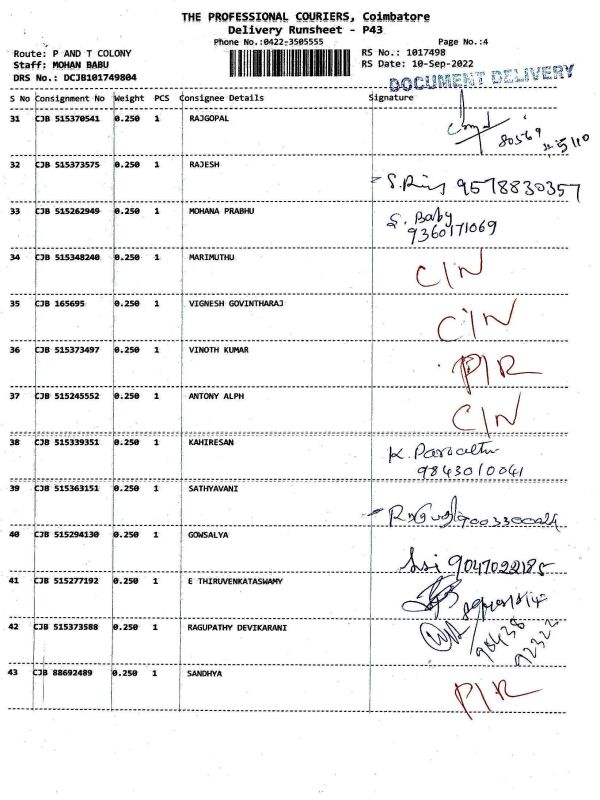 THE PROFESSIONAL COURIERS, Coimbatore
Delivery Runsheet - P43
Phone No.:0422-3505555 Page No.:4
Route: P AND T COLONY RS No.: 1017498
Staff: MOHAN BABU RS Date: 10-Sep-2022
DRS No.: DCJB101749804
DOCUMENT DELIVERY
S No Consignment No Weight PCS Consignee Details Signature
31 CJB 515370541 0.250 1 RAJGOPAL
80569
32 CJB 515373575 0.250 1 RAJESH
9578830357
33 CJB 515262949 0.250 1 MOHANA PRABHU S. Baby
9360171069
34 CJB 515348240 0.250 1 MARIMUTHU C/N
35 CJB 165695 0.250 1 VIGNESH GOVINTHARAJ C/N
36 CJB 515373497 0.250 1 VINOTH KUMAR P/R
37 CJB 515245552 0.250 1 ANTONY ALPH C/N
38 CJB 515339351 0.250 1 KAHIRESAN K.
9843010041
39 CJB 515363151 0.250 1 SATHYAVANI
40 CJB 515294130 0.250 1 GOWSALYA
9047022185
41 CJB 515277192 0.250 1 E THIRUVENKATASWAMY
42 CJB 515373588 0.250 1 RAGUPATHY DEVIKARANI
98438
92322
43 CJB 88692489 0.250 1 SANDHYA P/R